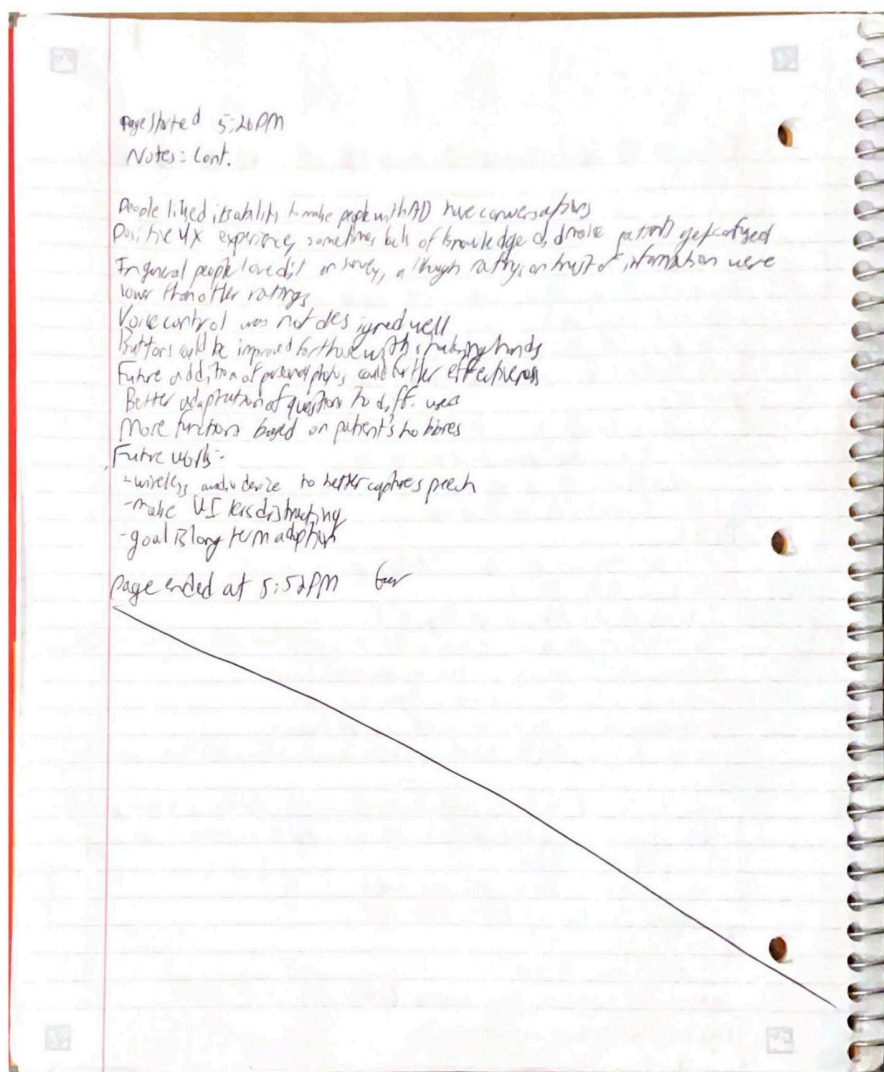 Page started 5:20PM
Notes: Cont.
People liked its ability to make people with AD have conversations
Positive UX experience, sometimes lack of knowledge did make patients get confused
In general people loved it on survey, although ratings on trust of information were
lower than other ratings
Voice control was not designed well
Buttons could be improved for those with shaking hands
Future addition of personal photos could further effectiveness
Better adaptation of questions to diff. users
More functions based on patient's hobbies
Future work:-
-wireless audio device to better capture speech
-make UI less distracting
-goal is long term adoption
page ended at 5:52PM